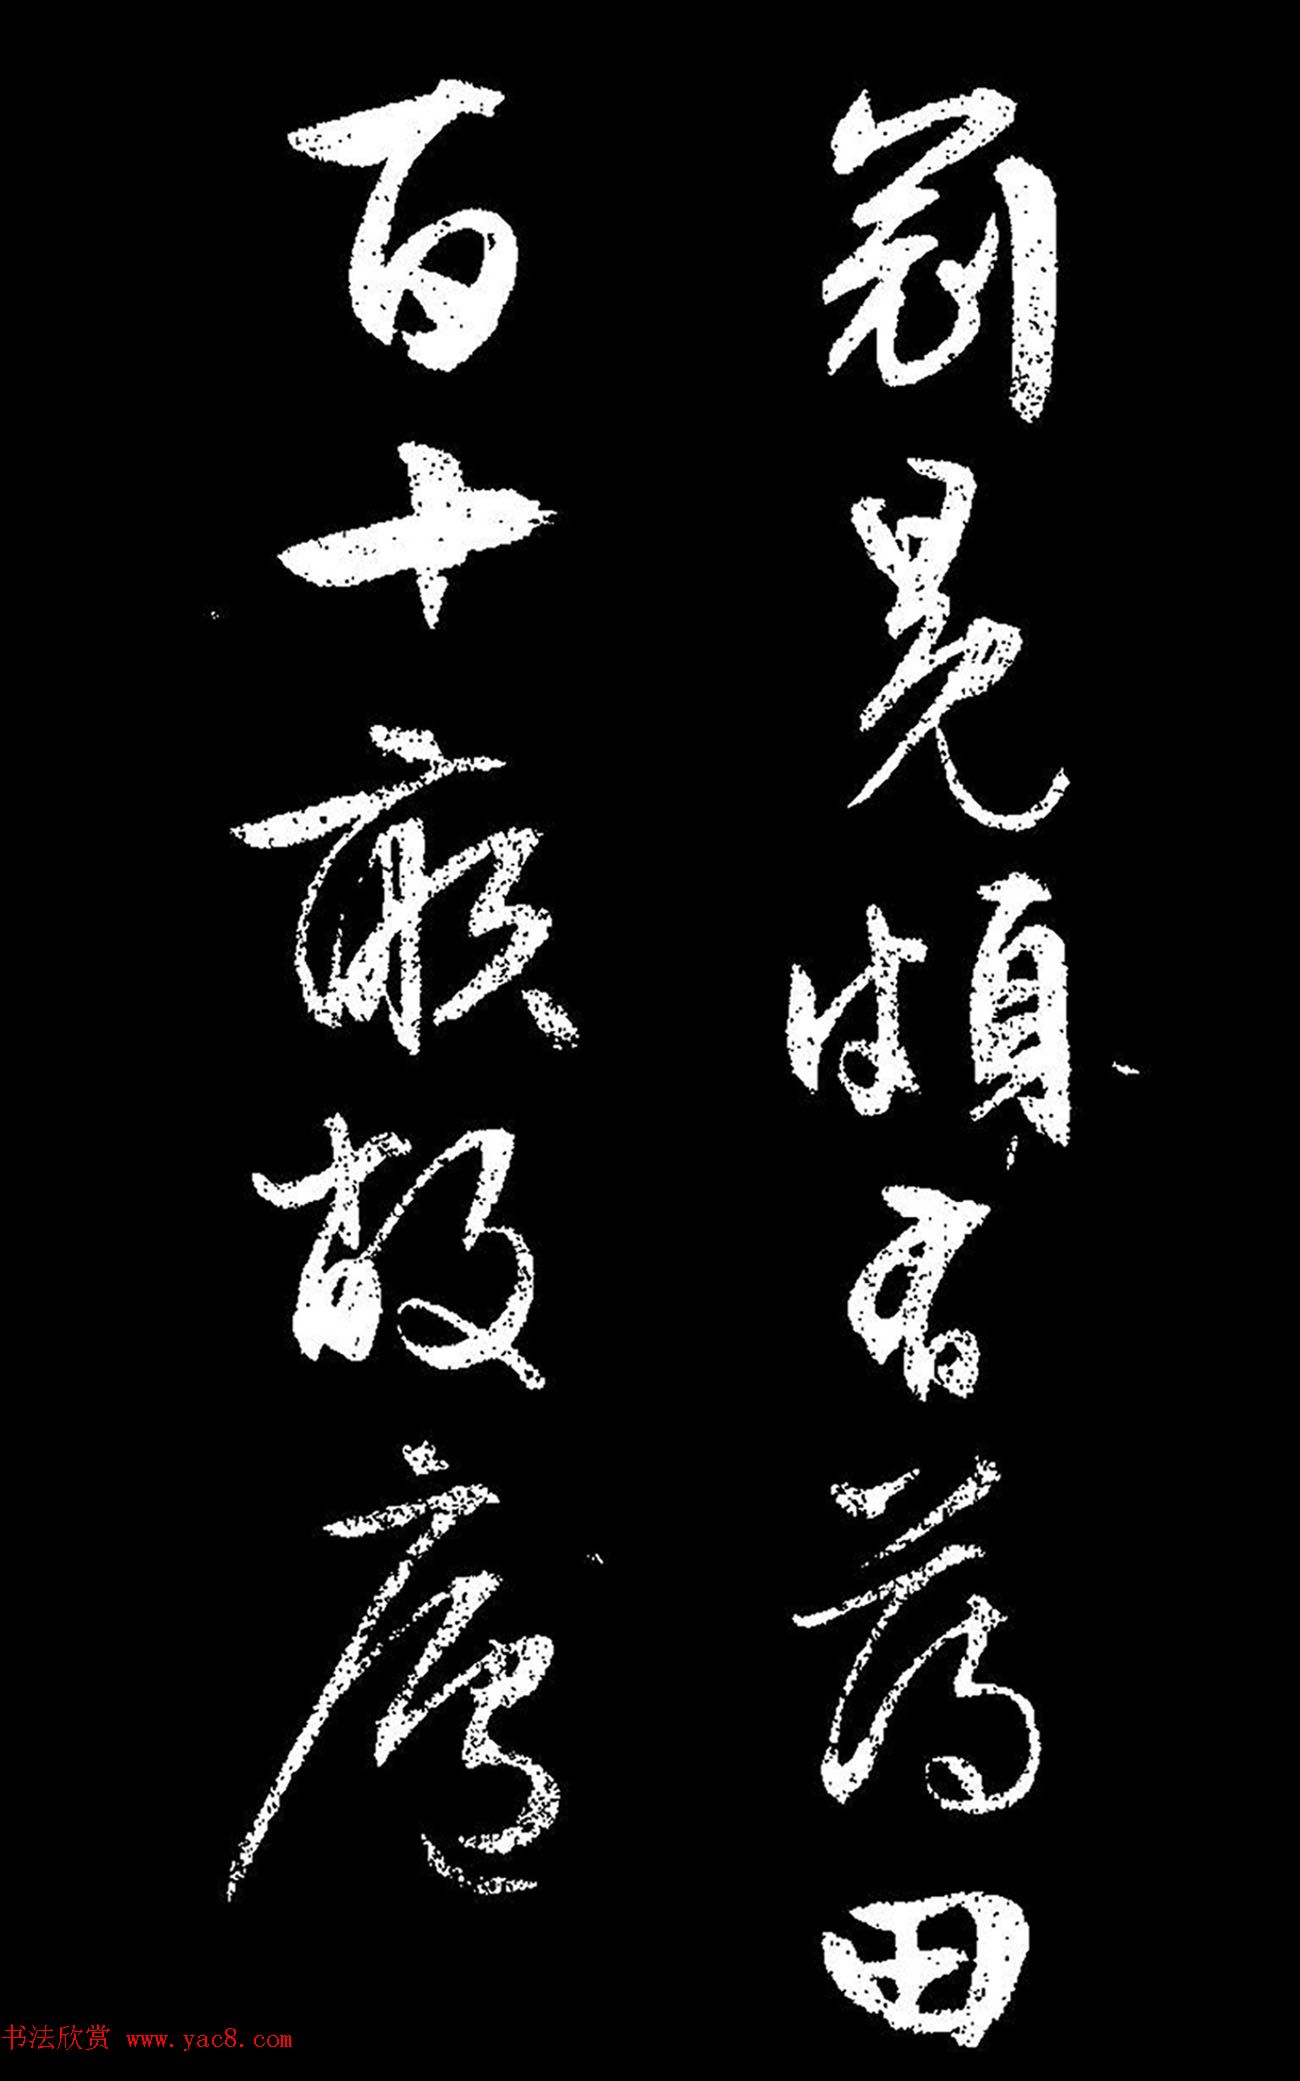 冠冕頗有薄田
百十畝故廬
书法欣赏 www.yac8.com